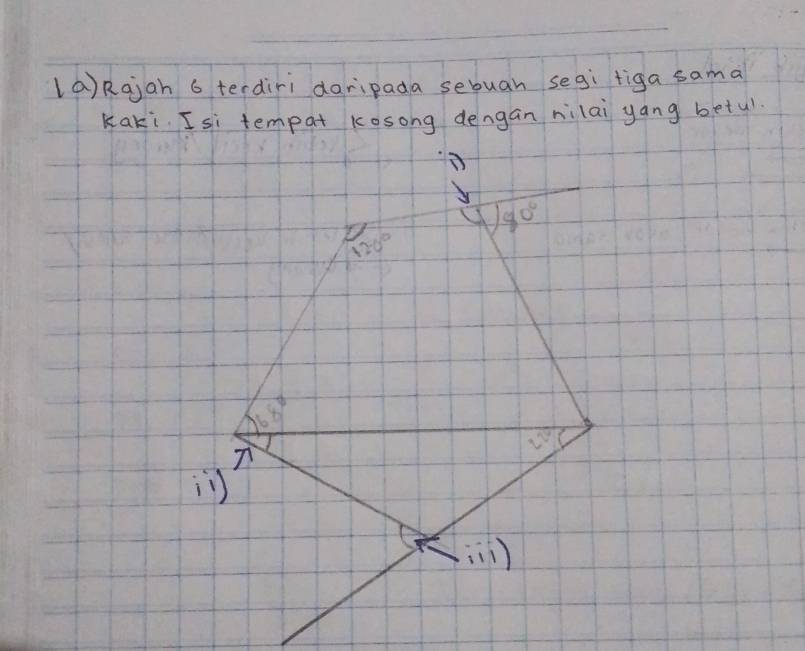 1a) Rajah 6 terdiri daripada sebuah segi tiga sama
kaki. Isi tempat kosong dengan nilai yang betul.
i)
80°
120°
68°
22°
ii)
iii)